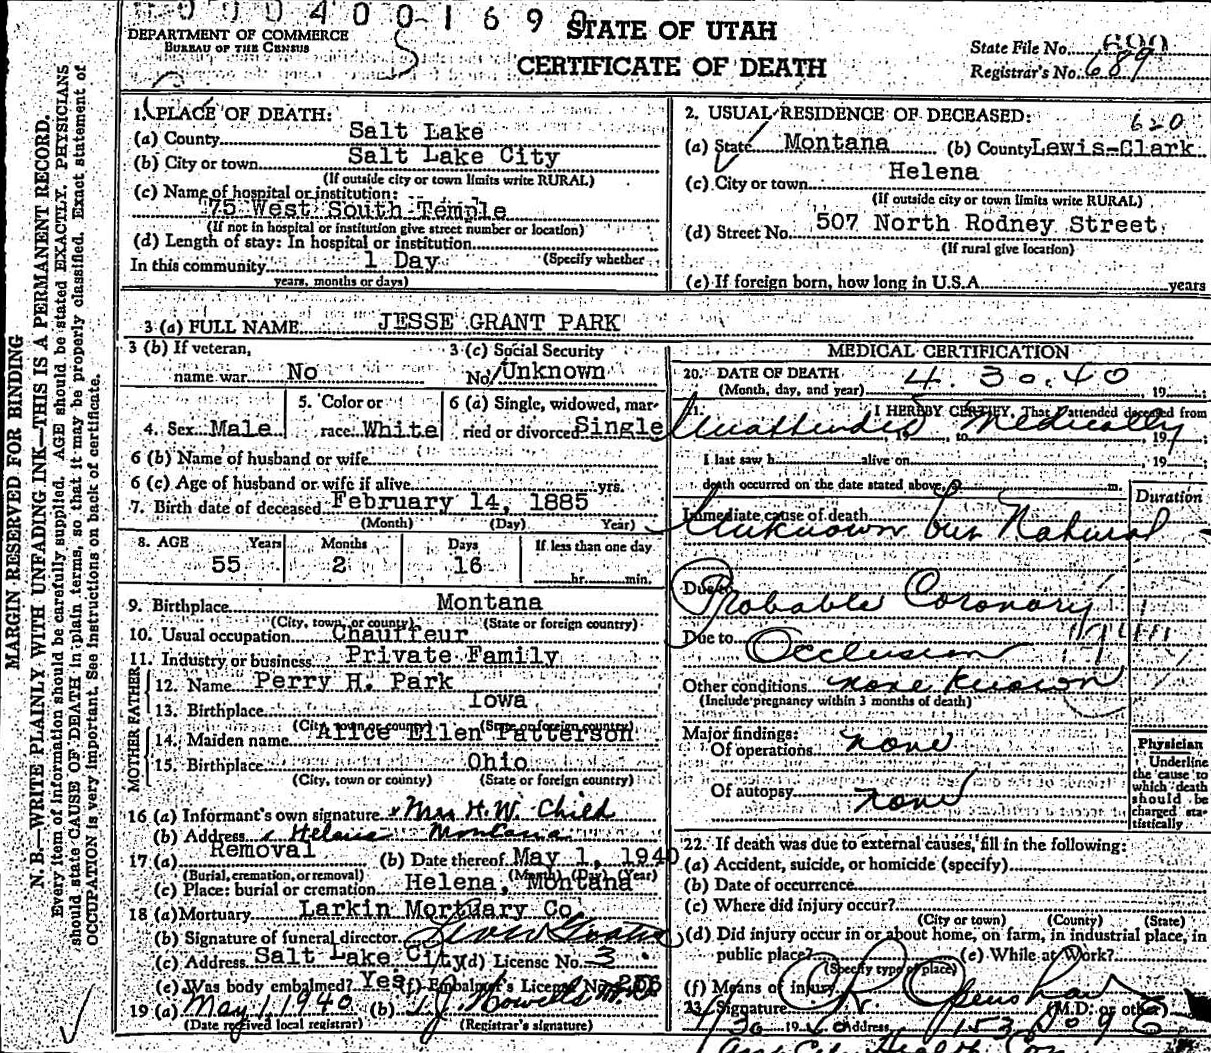 0004001690
DEPARTMENT OF COMMERCE
BUREAU OF THE CENSUS
STATE OF UTAH
CERTIFICATE OF DEATH
State File No. 690
Registrar's No. 689
MARGIN RESERVED FOR BINDING
N. B.—WRITE PLAINLY WITH UNFADING INK—THIS IS A PERMANENT RECORD.
Every item of information should be carefully supplied. AGE should be stated EXACTLY. PHYSICIANS
should state CAUSE OF DEATH in plain terms, so that it may be properly classified. Exact statement of
OCCUPATION is very important. See instructions on back of certificate.
1. PLACE OF DEATH:
(a) County Salt Lake
(b) City or town Salt Lake City
(If outside city or town limits write RURAL)
(c) Name of hospital or institution:
75 West South Temple
(If not in hospital or institution give street number or location)
(d) Length of stay: In hospital or institution
(Specify whether
In this community 1 Day
years, months or days)
2. USUAL RESIDENCE OF DECEASED:
620
(a) State Montana (b) County Lewis-Clark
(c) City or town Helena
(If outside city or town limits write RURAL)
(d) Street No. 507 North Rodney Street
(If rural give location)
(e) If foreign born, how long in U.S.A. years
3 (a) FULL NAME JESSE GRANT PARK
3 (b) If veteran, name war No
3 (c) Social Security No. Unknown
4. Sex Male
5. Color or race White
6 (a) Single, widowed, married or divorced Single
6 (b) Name of husband or wife
6 (c) Age of husband or wife if alive yrs.
7. Birth date of deceased February 14, 1885
(Month) (Day) Year)
8. AGE Years Months Days If less than one day
55 2 16 hr. min.
9. Birthplace Montana
(City, town, or county) (State or foreign country)
10. Usual occupation Chauffeur
11. Industry or business Private Family
FATHER
12. Name Perry H. Park
13. Birthplace Iowa
(City, town or county) (State or foreign country)
MOTHER
14. Maiden name Alice Ellen Patterson
15. Birthplace Ohio
(City, town or county) (State or foreign country)
16 (a) Informant's own signature x Mrs H.W. Child
(b) Address Helena Montana
17 (a) Removal (b) Date thereof May 1, 1940
(Burial, cremation, or removal) (Month) (Day) (Year)
(c) Place: burial or cremation Helena, Montana
18 (a) Mortuary Larkin Mortuary Co
(b) Signature of funeral director
(c) Address Salt Lake City (d) License No. 3
(e) Was body embalmed? Yes (f) Embalmer's License No. 206
19 (a) May 1, 1940 (b) T.J. Howells M.D.
(Date received local registrar) (Registrar's signature)
MEDICAL CERTIFICATION
20. DATE OF DEATH 4.30.40
(Month, day, and year) , 19 ;
21. I HEREBY CERTIFY, That I attended deceased from
Unattended , 19 , to Medically , 19 ;
I last saw h alive on , 19 ;
death occurred on the date stated above, m.
Duration
Immediate cause of death
Unknown but Natural
Due to
Probable Coronary
Due to Occlusion
Other conditions none known
(Include pregnancy within 3 months of death)
Major findings:
Of operations none
Of autopsy none
Physician
Underline
the cause to
which death
should be
charged sta-
tistically
22. If death was due to external causes, fill in the following:
(a) Accident, suicide, or homicide (specify)
(b) Date of occurrence
(c) Where did injury occur?
(City or town) (County) (State)
(d) Did injury occur in or about home, on farm, in industrial place, in
public place? (e) While at Work?
(Specify type of place)
(f) Means of injury
23. Signature Openshaw (M.D. or other)
19 40 Address